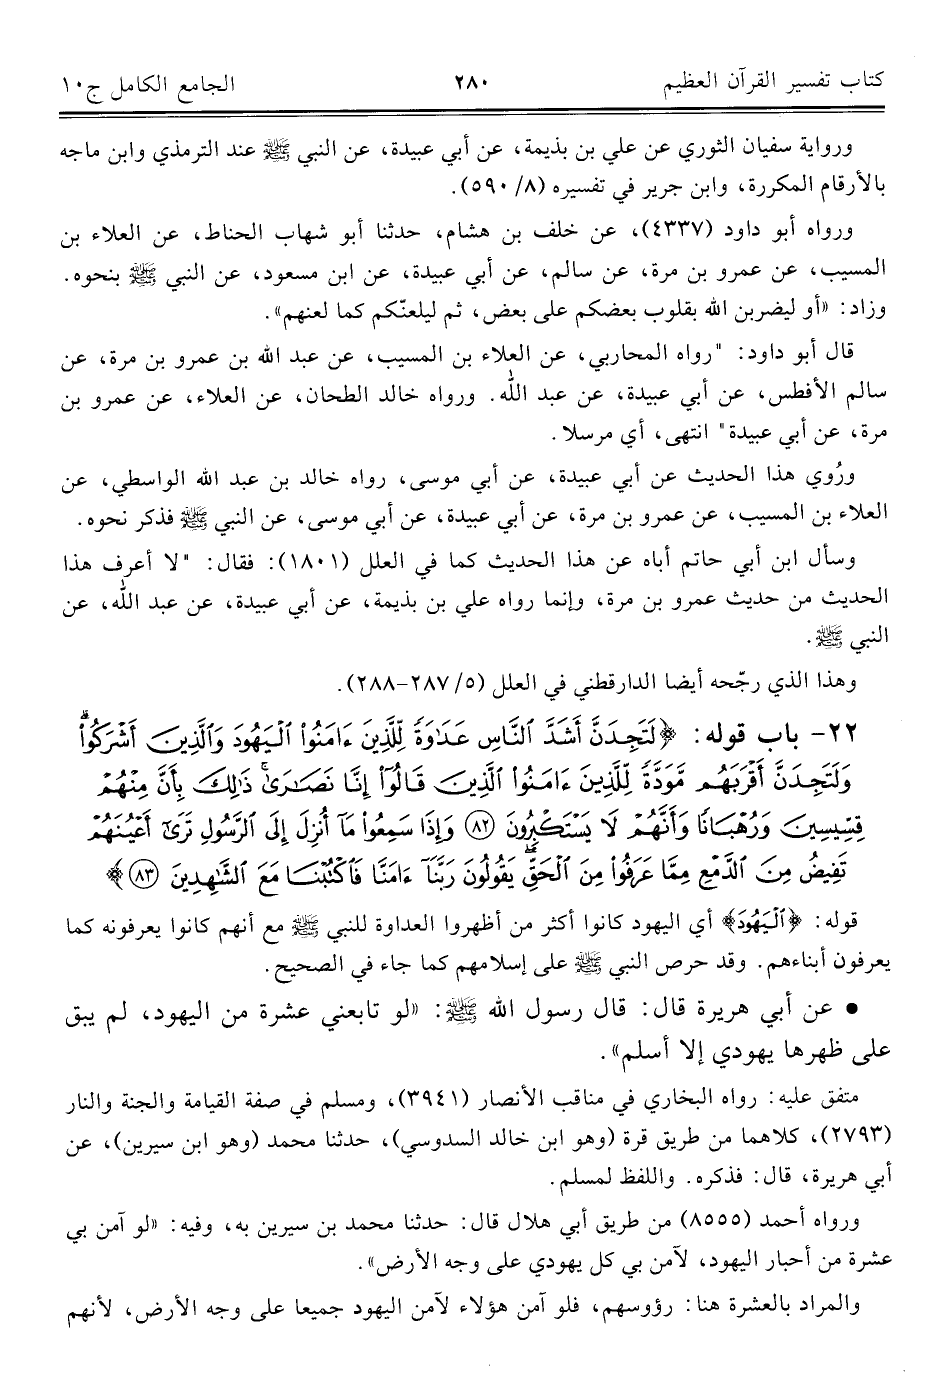 كتاب تفسير القرآن العظيم ٢٨٠ الجامع الكامل ج١٠
ورواية سفيان الثوري عن علي بن بذيمة، عن أبي عبيدة، عن النبي ﷺ عند الترمذي وابن ماجه
بالأرقام المكررة، وابن جرير في تفسيره (٨/ ٥٩٠).
ورواه أبو داود (٤٣٣٧)، عن خلف بن هشام، حدثنا أبو شهاب الحناط، عن العلاء بن
المسيب، عن عمرو بن مرة، عن سالم، عن أبي عبيدة، عن ابن مسعود، عن النبي ﷺ بنحوه.
وزاد: «أو ليضربن الله بقلوب بعضكم على بعض، ثم ليلعنّكم كما لعنهم».
قال أبو داود: "رواه المحاربي، عن العلاء بن المسيب، عن عبد الله بن عمرو بن مرة، عن
سالم الأفطس، عن أبي عبيدة، عن عبد الله. ورواه خالد الطحان، عن العلاء، عن عمرو بن
مرة، عن أبي عبيدة" انتهى، أي مرسلا.
ورُوي هذا الحديث عن أبي عبيدة، عن أبي موسى، رواه خالد بن عبد الله الواسطي، عن
العلاء بن المسيب، عن عمرو بن مرة، عن أبي عبيدة، عن أبي موسى، عن النبي ﷺ فذكر نحوه.
وسأل ابن أبي حاتم أباه عن هذا الحديث كما في العلل (١٨٠١): فقال: "لا أعرف هذا
الحديث من حديث عمرو بن مرة، وإنما رواه علي بن بذيمة، عن أبي عبيدة، عن عبد الله، عن
النبي ﷺ.
وهذا الذي رجّحه أيضا الدارقطني في العلل (٥/ ٢٨٧-٢٨٨).
٢٢- باب قوله: ﴿لَتَجِدَنَّ أَشَدَّ ٱلنَّاسِ عَدَٰوَةً لِّلَّذِينَ ءَامَنُوا۟ ٱلْيَهُودَ وَٱلَّذِينَ أَشْرَكُوا۟ۖ
وَلَتَجِدَنَّ أَقْرَبَهُم مَّوَدَّةً لِّلَّذِينَ ءَامَنُوا۟ ٱلَّذِينَ قَالُوٓا۟ إِنَّا نَصَٰرَىٰۚ ذَٰلِكَ بِأَنَّ مِنْهُمْ
قِسِّيسِينَ وَرُهْبَانًا وَأَنَّهُمْ لَا يَسْتَكْبِرُونَ ٨٢ وَإِذَا سَمِعُوا۟ مَآ أُنزِلَ إِلَى ٱلرَّسُولِ تَرَىٰٓ أَعْيُنَهُمْ
تَفِيضُ مِنَ ٱلدَّمْعِ مِمَّا عَرَفُوا۟ مِنَ ٱلْحَقِّۖ يَقُولُونَ رَبَّنَآ ءَامَنَّا فَٱكْتُبْنَا مَعَ ٱلشَّٰهِدِينَ ٨٣﴾
قوله: ﴿ٱلْيَهُودَ﴾ أي اليهود كانوا أكثر من أظهروا العداوة للنبي ﷺ مع أنهم كانوا يعرفونه كما
يعرفون أبناءهم. وقد حرص النبي ﷺ على إسلامهم كما جاء في الصحيح.
• عن أبي هريرة قال: قال رسول الله ﷺ: «لو تابعني عشرة من اليهود، لم يبق
على ظهرها يهودي إلا أسلم».
متفق عليه: رواه البخاري في مناقب الأنصار (٣٩٤١)، ومسلم في صفة القيامة والجنة والنار
(٢٧٩٣)، كلاهما من طريق قرة (وهو ابن خالد السدوسي)، حدثنا محمد (وهو ابن سيرين)، عن
أبي هريرة، قال: فذكره. واللفظ لمسلم.
ورواه أحمد (٨٥٥٥) من طريق أبي هلال قال: حدثنا محمد بن سيرين به، وفيه: «لو آمن بي
عشرة من أحبار اليهود، لآمن بي كل يهودي على وجه الأرض».
والمراد بالعشرة هنا: رؤوسهم، فلو آمن هؤلاء لآمن اليهود جميعا على وجه الأرض، لأنهم